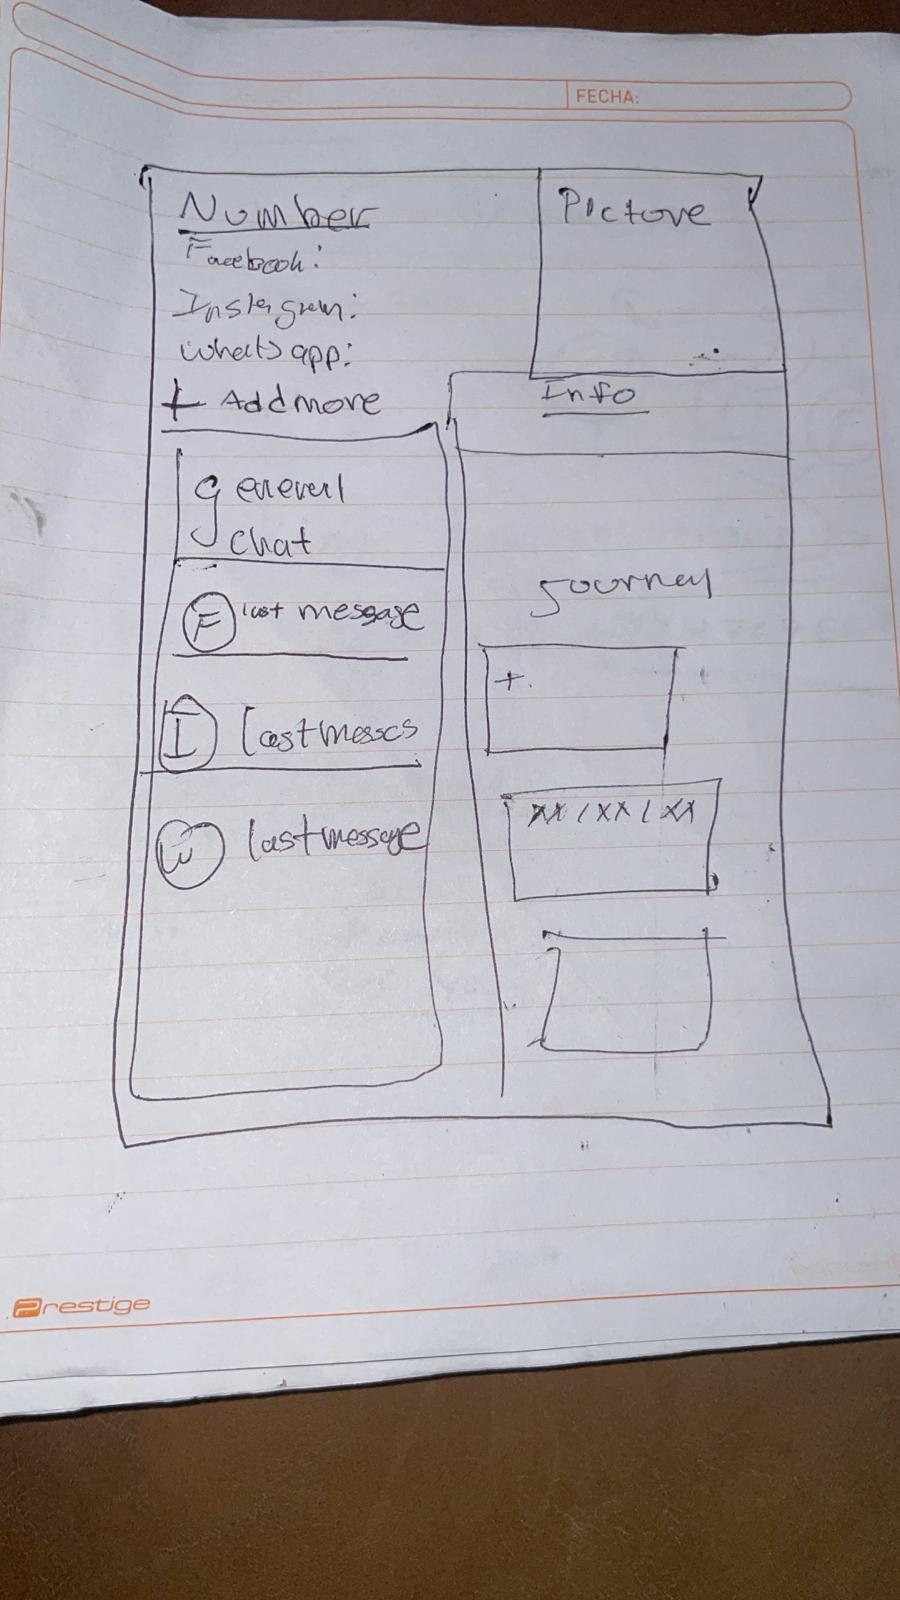 FECHA:
Number
Facebook:
Instagram:
Whatsapp:
+ Add more
Pictore
Info
general
chat
F last message
I last messcs
W last message
Journey
+
XX / XX / XX
Prestige